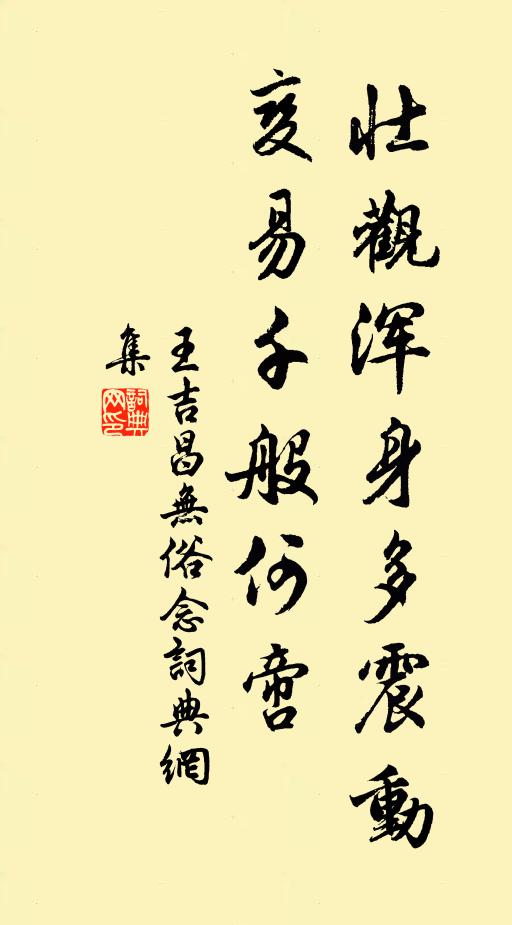 壮觀浑身多震動
变易千般何啻
王吉昌無俗念詞典網
集
詞典网印